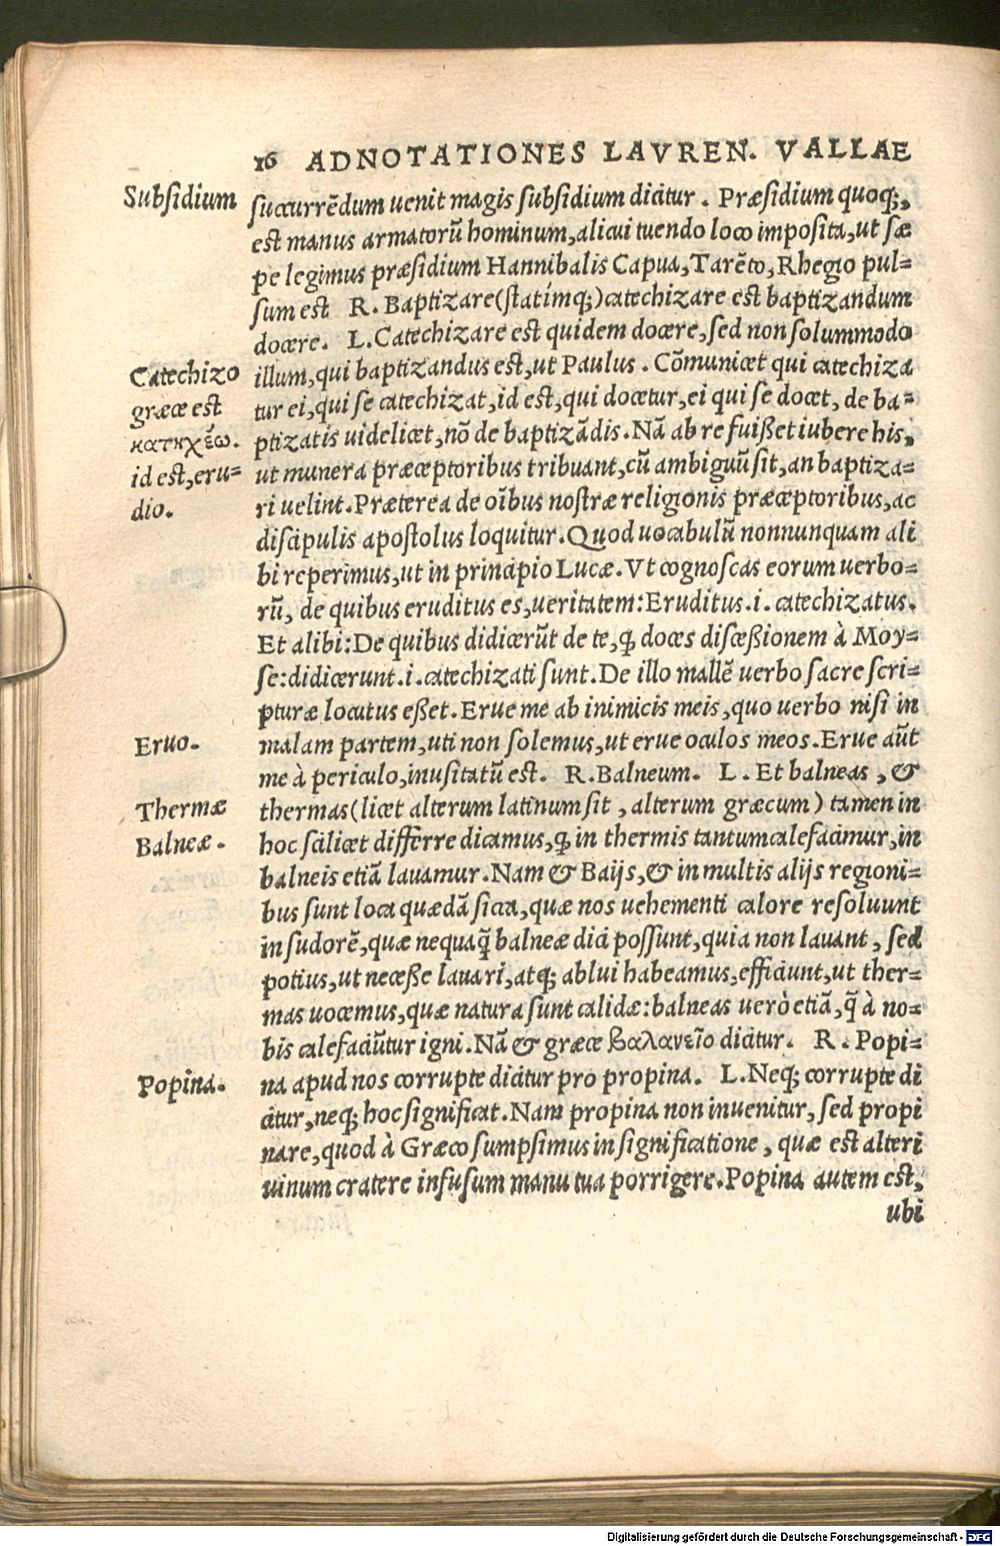 16 ADNOTATIONES LAVREN. VALLAE
Subsidium
succurrẽdum uenit magis subsidium dicitur. Præsidium quoq;,
est manus armatorũ hominum, alicui tuendo loco imposita, ut sæ
pe legimus præsidium Hannibalis Capua, Tarẽto, Rhegio pul=
sum est R. Baptizare (statímq;) catechizare est baptizandum
docere. L. Catechizare est quidem docere, sed non solummodo
Catechizo
græce est
κατηχέω.
id est, eru=
dio.
illum, qui baptizandus est, ut Paulus. Cõmunicet qui catechiza
tur ei, qui se catechizat, id est, qui docetur, ei qui se docet, de ba=
ptizatis uidelicet, nõ de baptizãdis. Nã ab re fuißet iubere his,
ut munera præceptoribus tribuant, cũ ambiguũ sit, an baptiza=
ri uelint. Præterea de oĩbus nostræ religionis præceptoribus, ac
discipulis apostolus loquitur. Quod uocabulũ nonnunquam ali
bi reperimus, ut in principio Lucæ. Vt cognoscas eorum uerbo=
rũ, de quibus eruditus es, ueritatem: Eruditus .i. catechizatus.
Et alibi: De quibus didicerũt de te, ꝗ doces disceßionem à Moy=
se: didicerunt .i. catechizati sunt. De illo mallẽ uerbo sacre scri=
pturæ locutus eßet. Erue me ab inimicis meis, quo uerbo nisi in
Eruo.
malam partem, uti non solemus, ut erue oculos meos. Erue aũt
me à periculo, inusitatũ est. R. Balneum. L. Et balneas, &
Thermæ
Balneæ.
thermas (licet alterum latinum sit, alterum græcum) tamen in
hoc scilicet differre dicamus, ꝗ in thermis tantum calefacimur, in
balneis etiã lauamur. Nam & Baijs, & in multis alijs regioni=
bus sunt loca quædã sicca, quæ nos uehementi calore resoluunt
in sudorẽ, quæ nequaq̃ balneæ dici possunt, quia non lauant, sed
potius, ut neceße lauari, atq; ablui habeamus, efficiunt, ut ther=
mas uocemus, quæ natura sunt calidæ: balneas uerò etiã, q̃ à no=
bis calefaciũtur igni. Nã & græce βαλανεῖο dicitur. R. Popi=
Popina.
na apud nos corrupte dicitur pro propina. L. Neq; corrupte di
citur, neq; hoc significat. Nam propina non inuenitur, sed propi
nare, quod à Græco sumpsimus in significatione, quæ est alteri
uinum cratere infusum manu tua porrigere. Popina autem est,
ubi
Digitalisierung gefördert durch die Deutsche Forschungsgemeinschaft - DFG